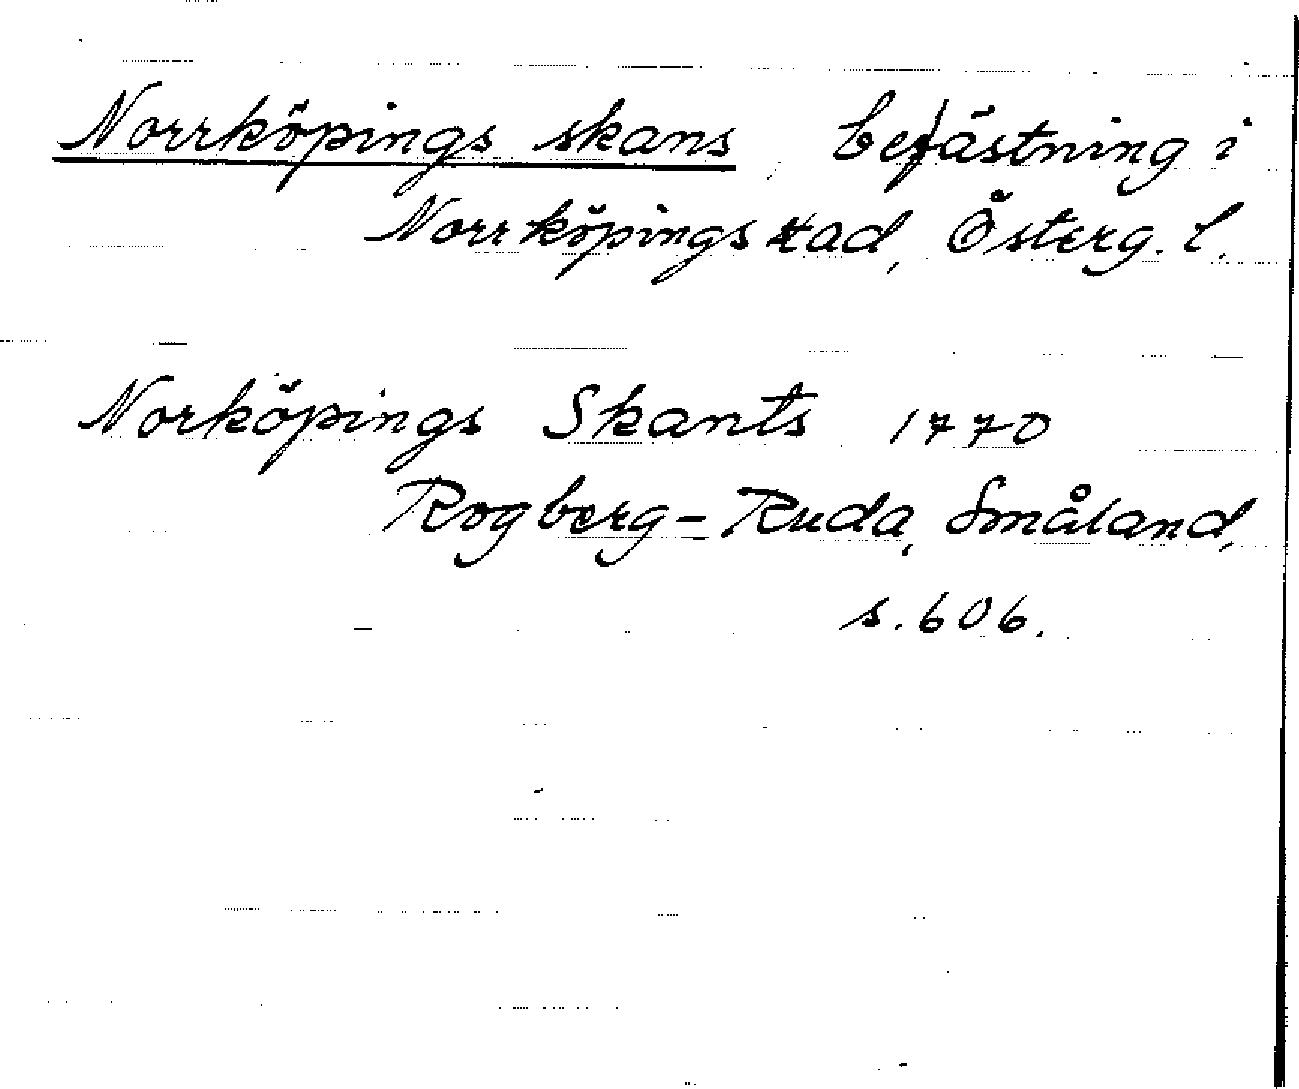 Norrköpings skans, befästning i
Norrköping stad, Österg. l.
Norköpings Skants 1770
Rogberg-Ruda, Småland,
s. 606.